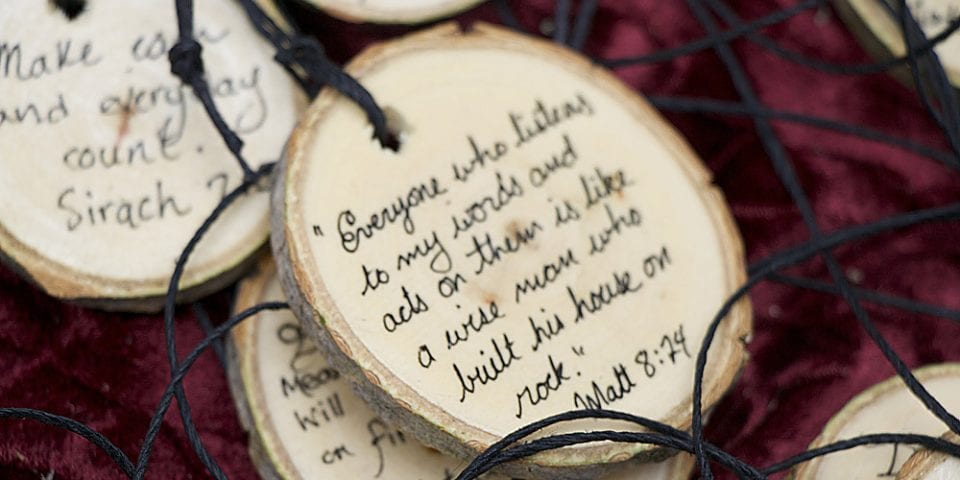 Make each
and everyday
count.
Sirach
"Everyone who listens
to my words and
acts on them is like
a wise man who
built his house on
rock."
Matt 8:24
will
on